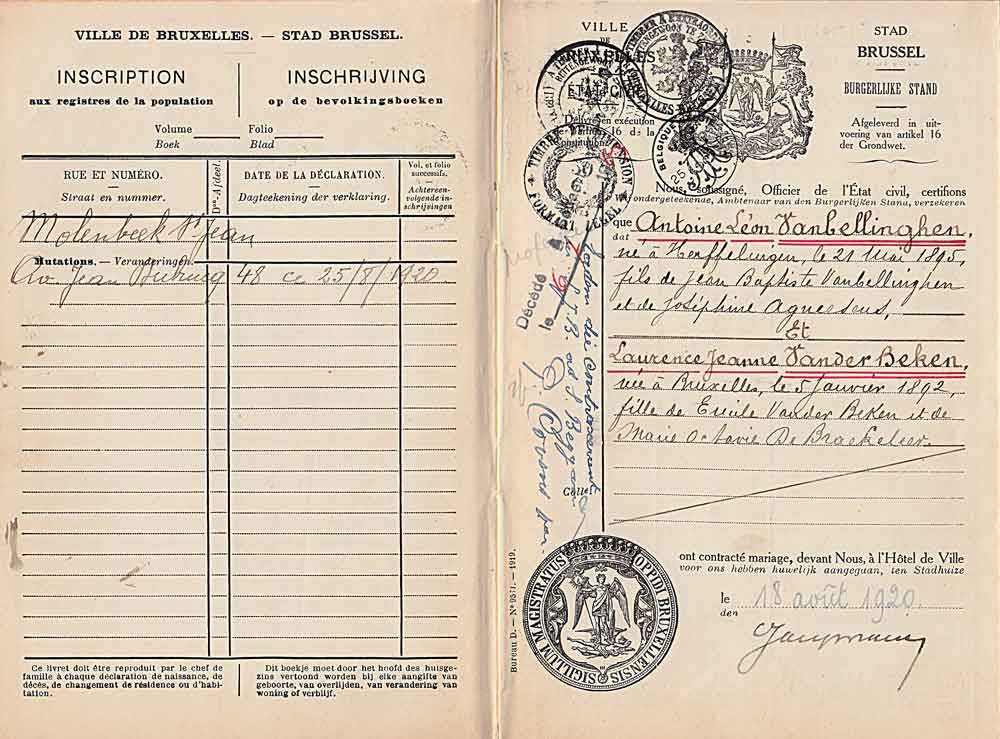 VILLE DE BRUXELLES. — STAD BRUSSEL.
INSCRIPTION
aux registres de la population
INSCHRIJVING
op de bevolkingsboeken
Volume Folio
Boek Blad
RUE ET NUMÉRO.
Straat en nummer.
Don-Afdeel.
DATE DE LA DÉCLARATION.
Dagteekening der verklaring.
Vol. et folio
successifs.
Achtereen-
volgende in-
schrijvingen
Molenbeek St Jean
Mutations. — Veranderingen.
Av Jean 48 ce 25/8/1920.
Ce livret doit être reproduit par le chef de
famille à chaque déclaration de naissance, de
décès, de changement de résidence ou d'habi-
tation.
Dit boekje moet door het hoofd des huisge-
zins vertoond worden bij elke aangifte van
geboorte, van overlijden, van verandering van
woning of verblijf.
VILLE
DE
BRUXELLES
ÉTAT CIVIL
Délivré en exécution
de l'article 16 de la
Constitution.
STAD
BRUSSEL
BURGERLIJKE STAND
Afgeleverd in uit-
voering van artikel 16
der Grondwet.
Nous, soussigné, Officier de l'État civil, certifions
Wij ondergeteekende, Ambtenaar van den Burgerlijken Stand, verzekeren
que Antoine Léon Vanbellinghen,
dat
né à Herffelingen, le 21 Mai 1895,
fils de Jean Baptiste Vanbellinghen
et de Joséphine Agneesens,
Et
Laurence Jeanne Vander Beken,
née à Bruxelles, le 5 Janvier 1892,
fille de Emile Vander Beken et de
Marie Octavie De Braekeleer.
Décédé
le
ont contracté mariage, devant Nous, à l'Hôtel de Ville
voor ons hebben huwelijk aangegaan, ten Stadhuize
le 18 août 1920.
den
SIGILLUM MAGISTRATUS OPPIDI BRUXELLENSIS
Bureau D. — N° 9571. — 1919.